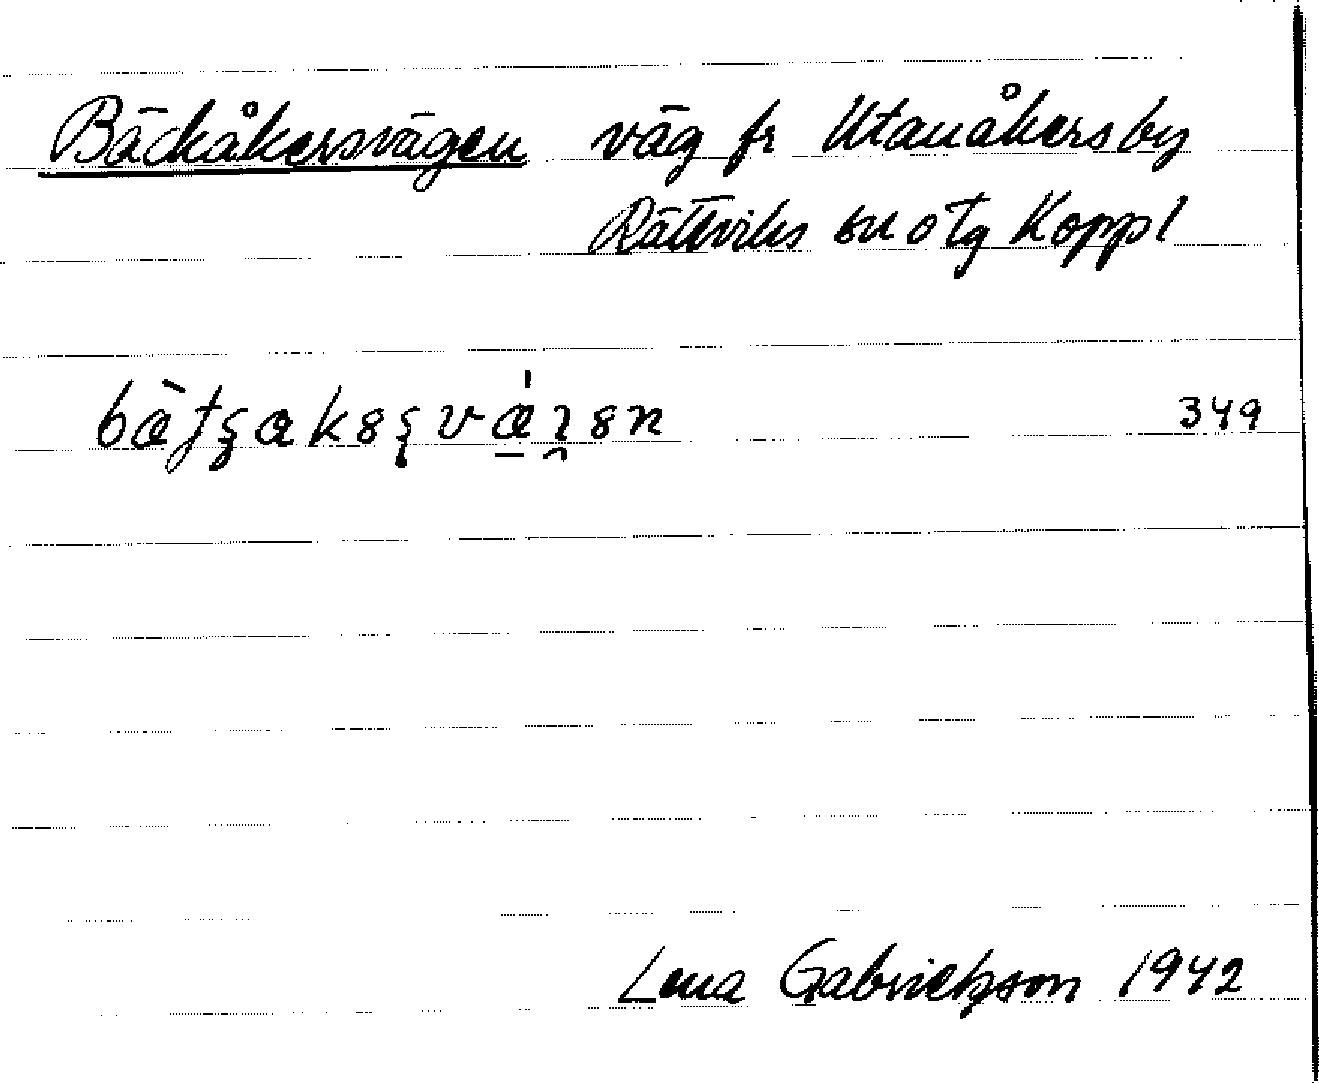 Bäckåkersvägen väg fr Utanåkersby
Rättviks sn o tg Koppl
349
Lena Gabrielsson 1942